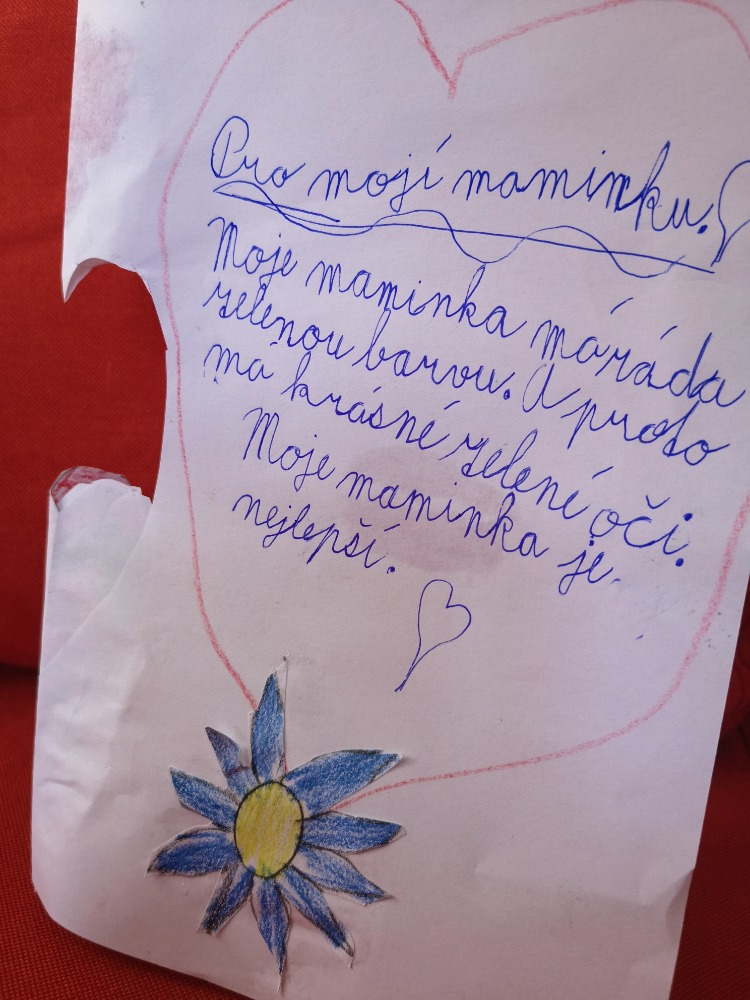 Pro mojí maminku.
Moje maminka má ráda
zelenou barvu. A proto
má krásné zelené oči.
Moje maminka je.
nejlepší.